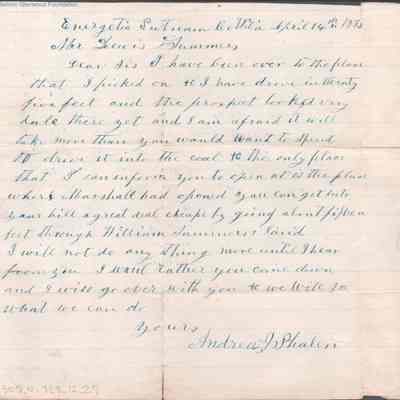 Energetic Putnam Co WVa April 14th
Mr Lewis Summers
Dear Sir I have been over to the place
that I picked on & I have drove in twenty
five feet and the prospect looks very
bade there yet and I am afraid it will
take more than you would want to spend
to drive it into the coal & the only place
that I can you to open at is the place
where Marshall had opened you can get into
your hill a great deal cheape by going about fifteen
feet through William Summers land
I will not do any thing more until I hear
from you I would rather you came down
and I will go over with you & we will see
what we can do
Yours
Andrew J Phalen